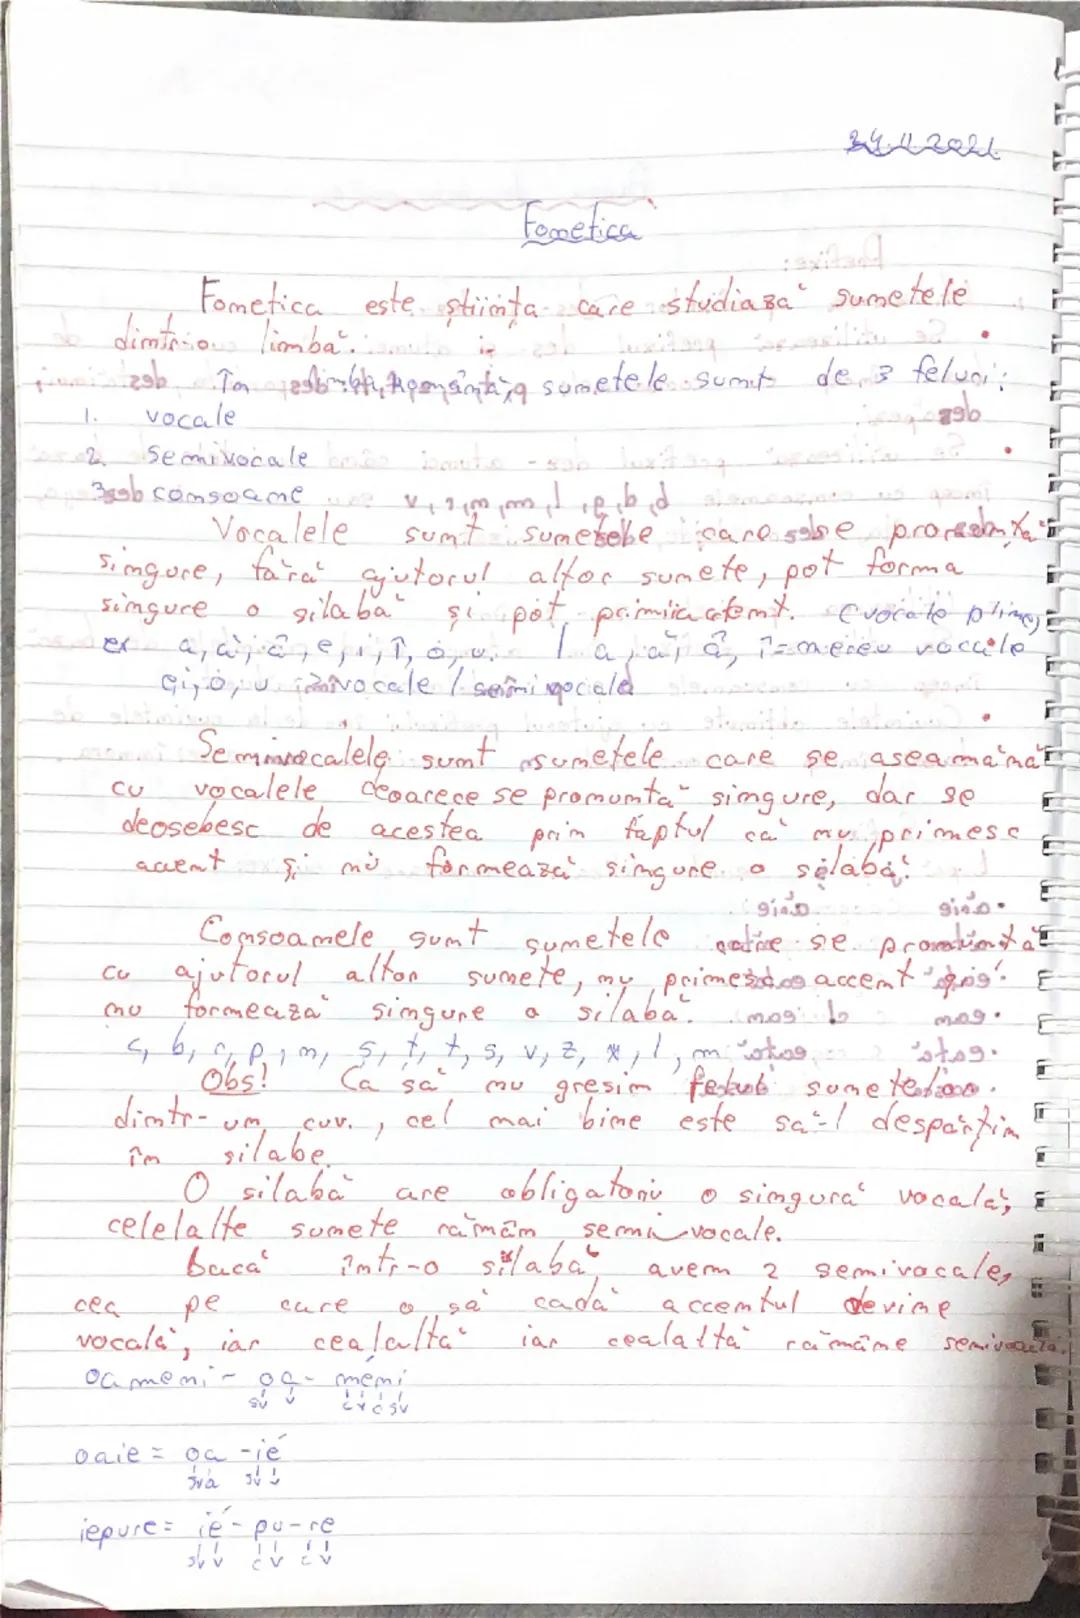 24.11.2021
Fonetica
Fonetica este știința care studiază sunetele
dintr-o limbă.
În sunetele sunt de 3 feluri:
1. vocale
2. semivocale
3. consoane
Vocalele sunt sunetele care se pronunță
singure, fără ajutorul altor sunete, pot forma
singure o silabă și pot primi accent. (vocale pline)
ex a, ă, â, e, i, î, o, u. / a, ă, â, î = mereu vocale
e, i, o, u vocale / semivocale
Semivocalele sunt sunetele care se aseamănă
cu vocalele deoarece se pronunță singure, dar se
deosebesc de acestea prin faptul că nu primesc
accent și nu formează singure o silabă.
Consoanele sunt sunetele care se pronunță
cu ajutorul altor sunete, nu primesc accent și
nu formează singure o silabă.
c, b, r, p, n, s, t, ț, s, v, z, x, l, m
Obs! Ca să nu gresim felul sunetelor
dintr-un cuv., cel mai bine este să-l despărțim
în silabe.
O silabă are obligatoriu o singură vocală,
celelalte sunete rămân semivocale.
Dacă într-o silabă avem 2 semivocale,
cea pe care o să cadă accentul devine
vocală, iar cealaltă iar cealaltă rămâne semivocală.
oameni - oa - meni
sv v c v c sv
oaie = oa - ie
sv a sv v
iepure = ie - pu - re
sv v c v c v